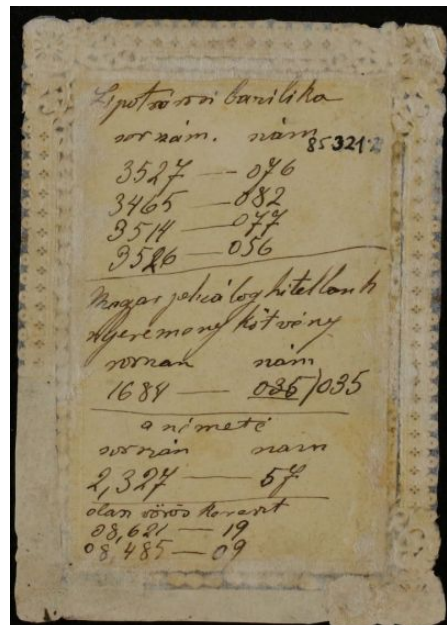 Lipotvárosi bazilika
sor szám. szám
85321.2
3527 — 076
3465 — 082
3514 — 077
3526 — 056
Magyar jelzálog hitelbank
nyeremény kötvény
szám
1684 — 035/035
a németé
2,327 — 57
olasz vörös kereszt
08,621 — 19
08,485 — 09